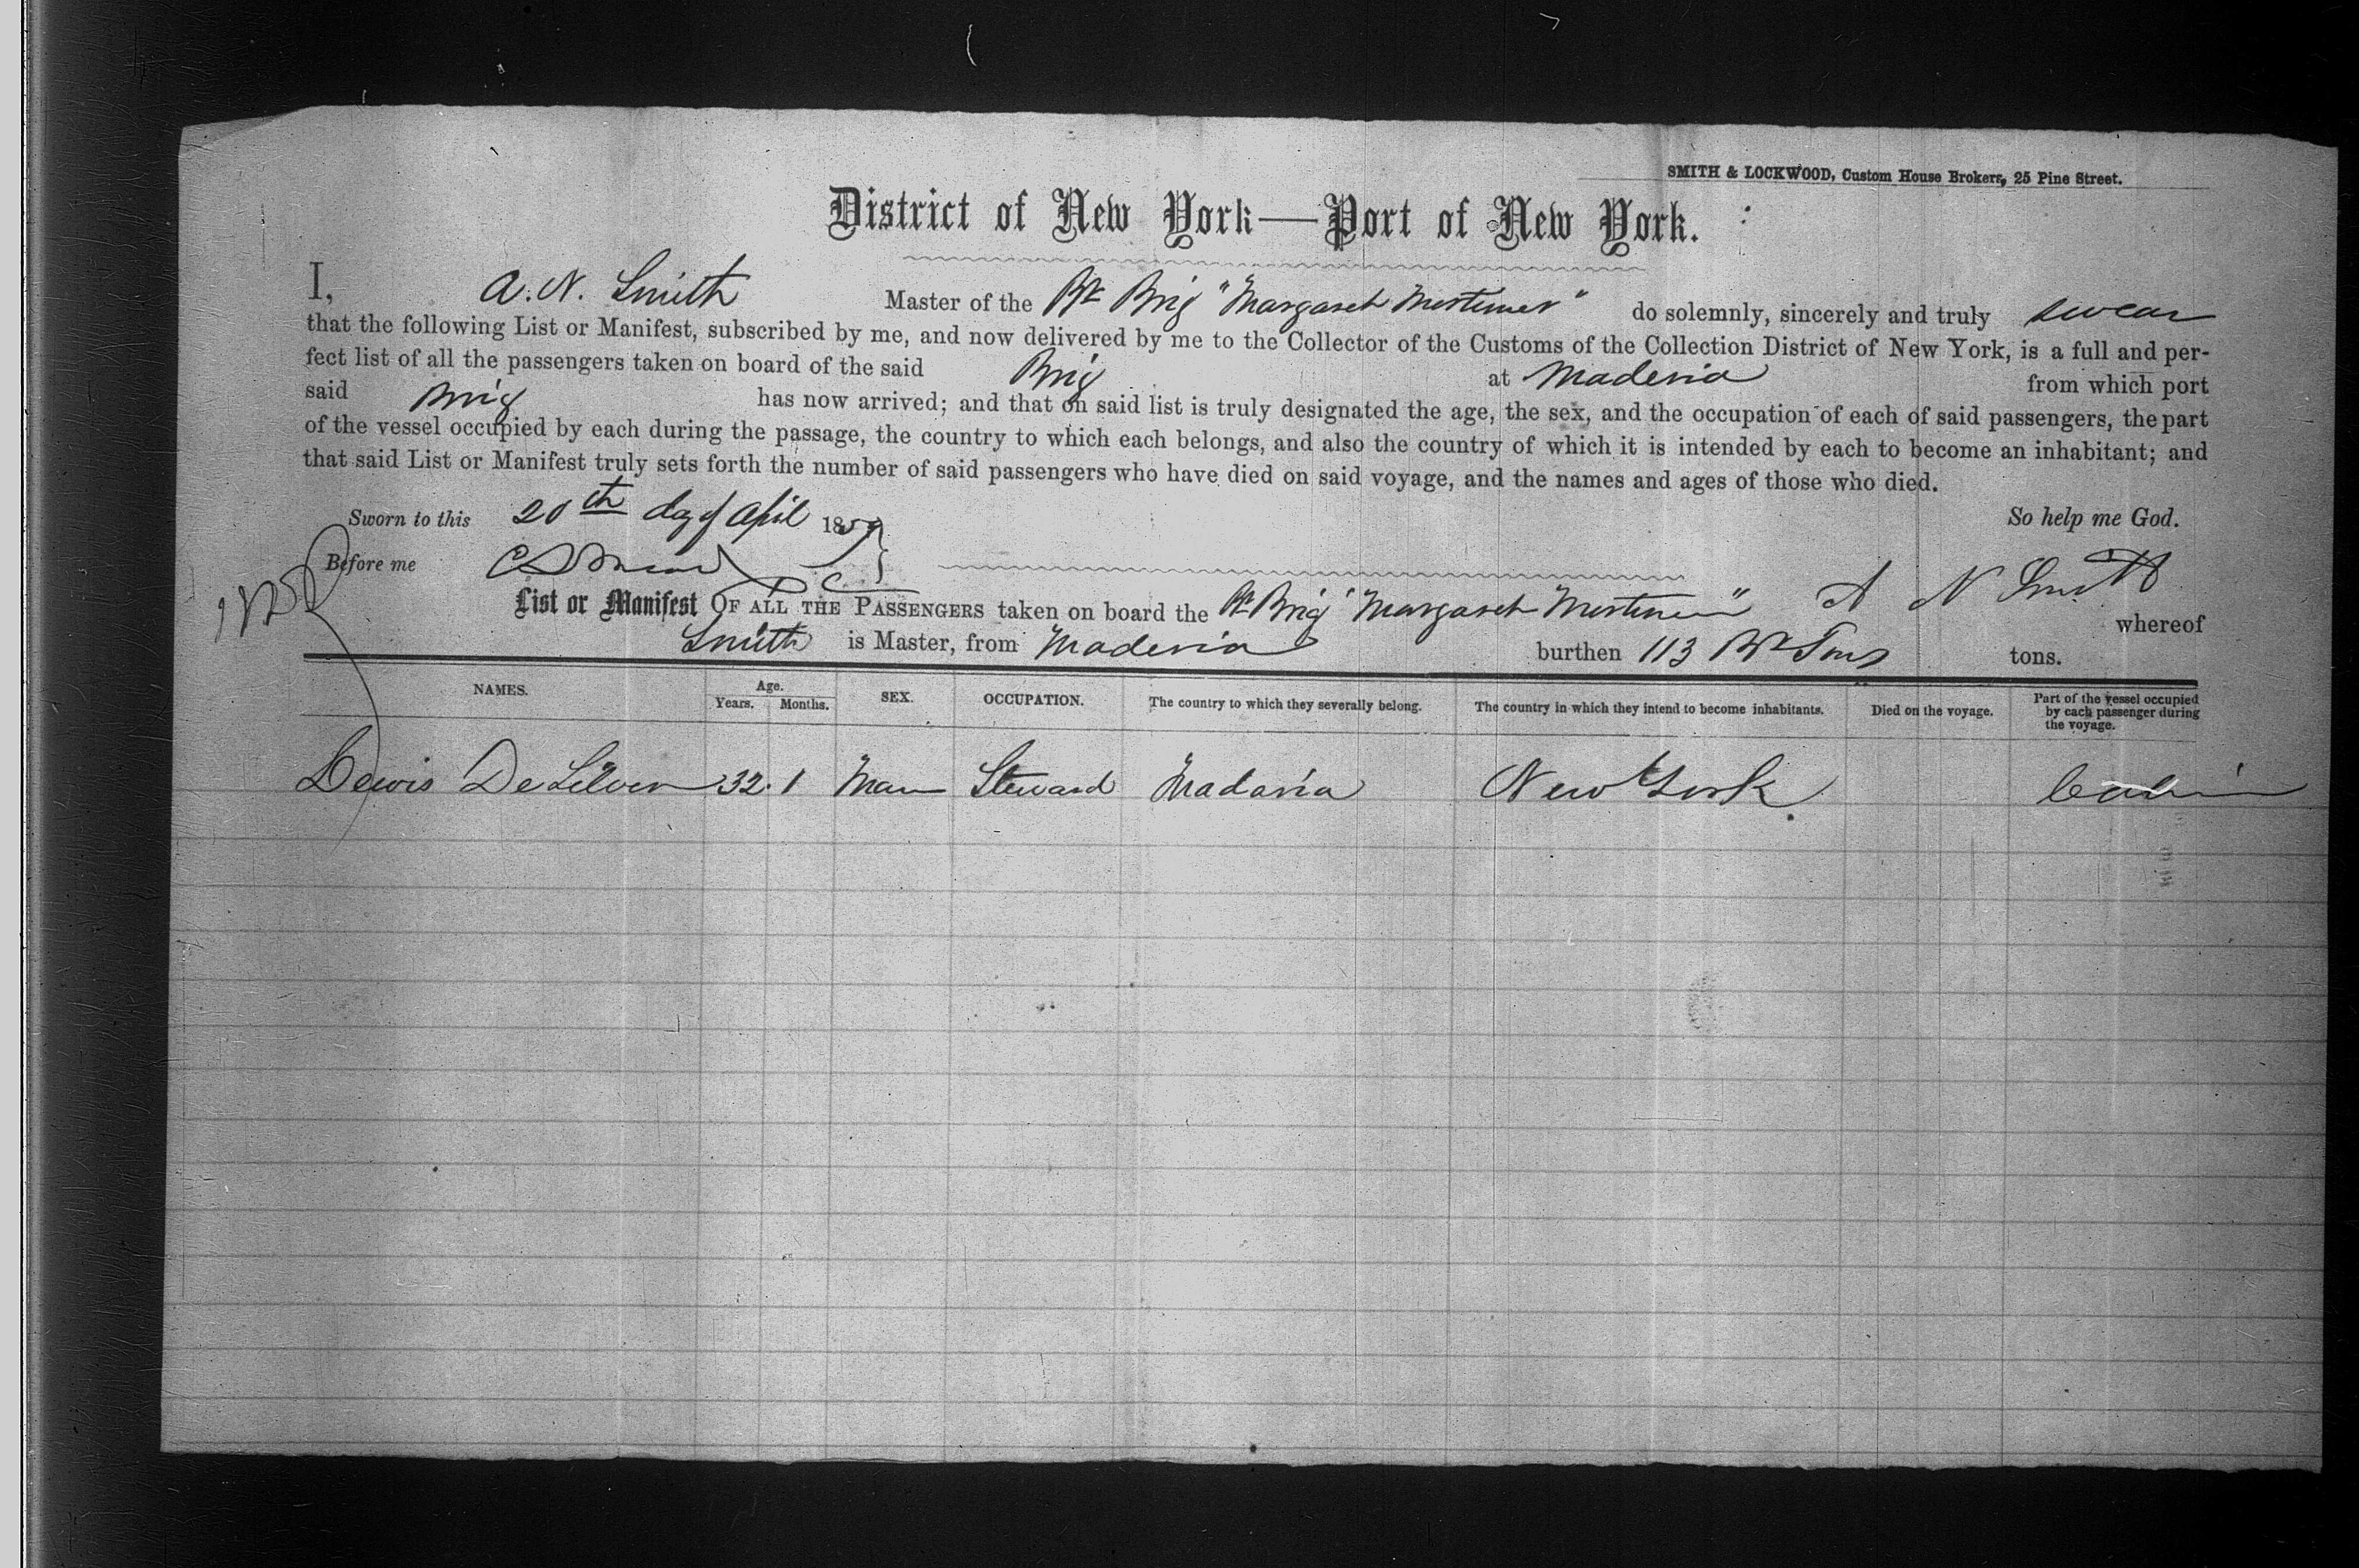 SMITH & LOCKWOOD, Custom House Brokers, 25 Pine Street.
District of New York—Port of New York.
I, A. N. Smith Master of the Br Brig "Margaret Mortimer" do solemnly, sincerely and truly swear
that the following List or Manifest, subscribed by me, and now delivered by me to the Collector of the Customs of the Collection District of New York, is a full and per-
fect list of all the passengers taken on board of the said Brig at Maderia from which port
said Brig has now arrived; and that on said list is truly designated the age, the sex, and the occupation of each of said passengers, the part
of the vessel occupied by each during the passage, the country to which each belongs, and also the country of which it is intended by each to become an inhabitant; and
that said List or Manifest truly sets forth the number of said passengers who have died on said voyage, and the names and ages of those who died.
Sworn to this 20th day of April 1859 So help me God.
Before me A N Smith
List or Manifest OF ALL THE PASSENGERS taken on board the Br Brig "Margaret Mortimer" whereof
Smith is Master, from Maderia burthen 113 Br Tons tons.
NAMES. Age. Years. Months. SEX. OCCUPATION. The country to which they severally belong. The country in which they intend to become inhabitants. Died on the voyage. Part of the vessel occupied by each passenger during the voyage.
Lewis De Silver 32. 1 Man Steward Madaria New York Cabin